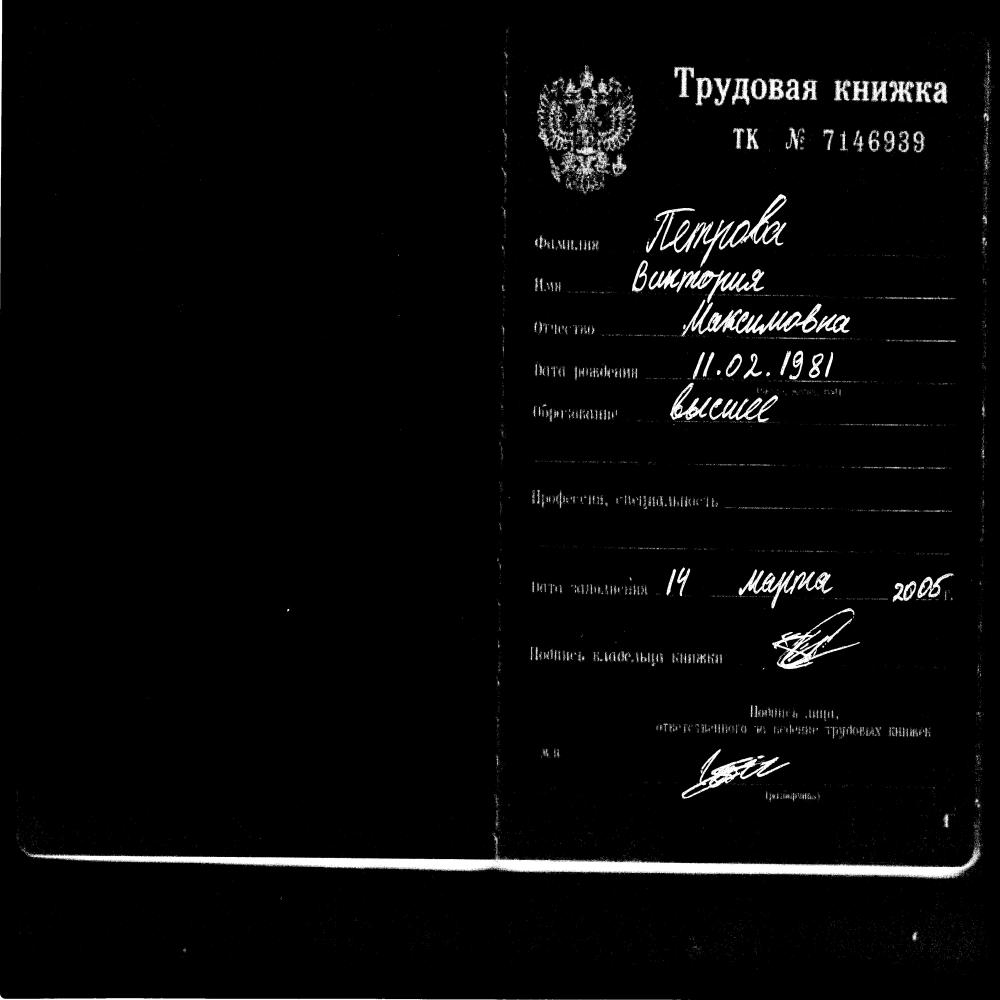 Трудовая книжка
ТК № 7146939
Фамилия Петрова
Имя Виктория
Отчество Максимовна
Дата рождения 11.02.1981
(число, месяц, год)
Образование высшее
Профессия, специальность
Дата заполнения 14 марта 2005 г.
Подпись владельца книжки
Подпись лица,
ответственного за ведение трудовых книжек
М.П.
(разборчиво)
1